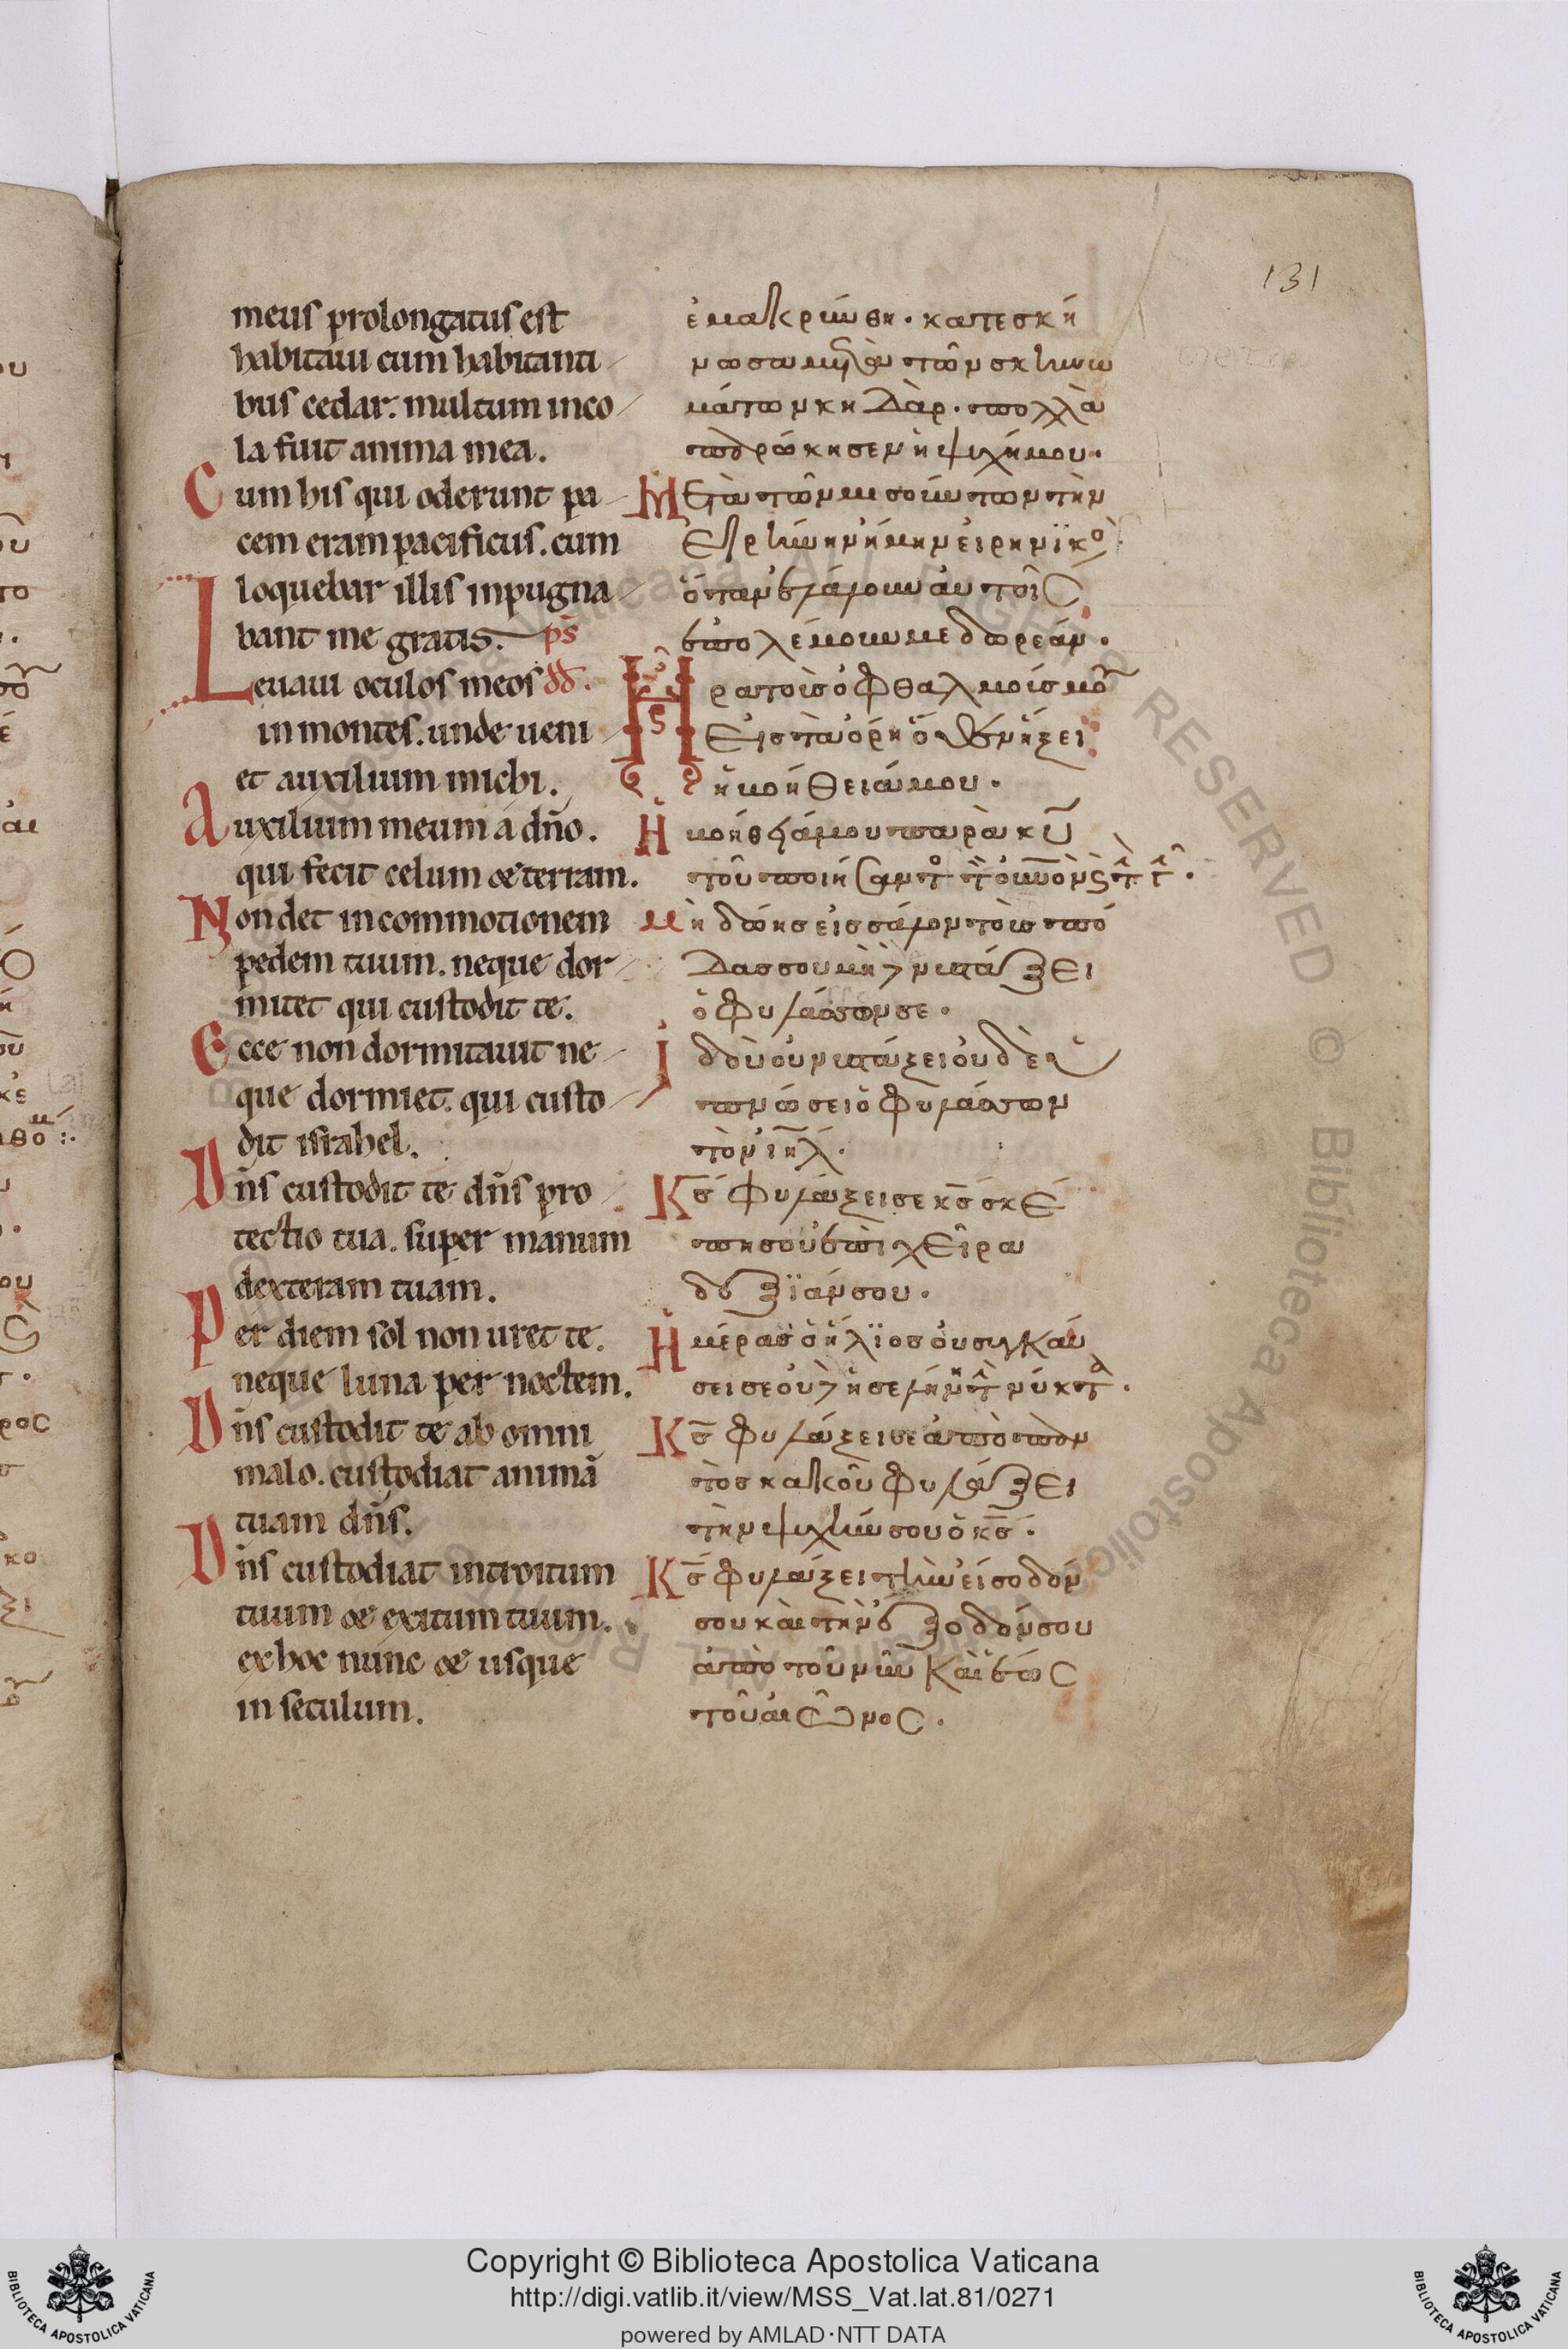 131
meus prolongatus est
habitaui cum habitanti
bus cedar. multum inco
la fuit anima mea.
Cum his qui oderunt pa
cem eram pacificus. cum
loquebar illis inpugna
bant me gratis. ps̄
Leuaui oculos meos dd.
in montes. unde ueni
et auxilium michi.
Auxilium meum a dn̄o.
qui fecit celum & terram.
Non det in commotionem
pedem tuum. neque dor
mitet qui custodit te.
Ecce non dormitauit ne
que dormiet. qui custo
dit israhel.
Dn̄s custodit te dn̄s pro
tectio tua. super manum
dexteram tuam.
Per diem sol non uret te.
neque luna per noctem.
Dn̄s custodit te ab omni
malo. custodiat animā
tuam dn̄s.
Dn̄s custodiat introitum
tuum & exitum tuum.
ex hoc nunc & usque
in seculum.
ἐμακρύνθη. κατεσκή
νωσα μετὰ τῶν σκηνω
μάτων κηδὰρ. πολλὰ
παρώκησεν ἡ ψυχή μου.
Μετὰ τῶν μισούντων τὴν
εἰρήνην ἤμην εἰρηνϊκό
ὅταν ἐλάλουν αὐτοῖς
ἐπολέμουν με δωρεάν.
Ηρα τοὺσ ὀφθαλμούσ μου
Εἰσ τὰ ὄρη ὅθεν ἥξει
ἡ βοήθειά μου.
Ἡ βοήθειά μου παρὰ κῡ
τοῦ ποιήσαντ τ οὐνὸν ς τ γ.
μὴ δώησ εἰσ σάλον τὸν πό
δα σου μὴδὲ νυστάξει
ὁ φυλάσσων σε.
Ἰδοὺ οὐ νυστάξει οὐδὲ
υπνώσει ὁ φυλάσσων
τὸν ιη̄λ.
Κσ̄ φυλάξει σε κσ̄ σκέ
πη σου ἐπὶ χεῖρα
δεξϊάν σου.
Ἡμέρασ ὁ ἥλϊοσ οὐ συγκαύ
σει σε οὐδὲ ἡ σελήνη τ νύκτα.
Κσ̄ φυλάξει σε ἀπὸ παν
τὸσ κακοῦ φυλάξει
τὴν ψυχήν σου ὁ κσ̄.
Κσ̄ φυλάξει τὴν εἴσοδόν
σου καὶ τὴν ἔξοδόν σου
ἀπὸ τοῦ νῦν Καὶ ἕως
τοῦ αἰῶνος.
Copyright © Biblioteca Apostolica Vaticana
http://digi.vatlib.it/view/MSS_Vat.lat.81/0271
powered by AMLAD·NTT DATA